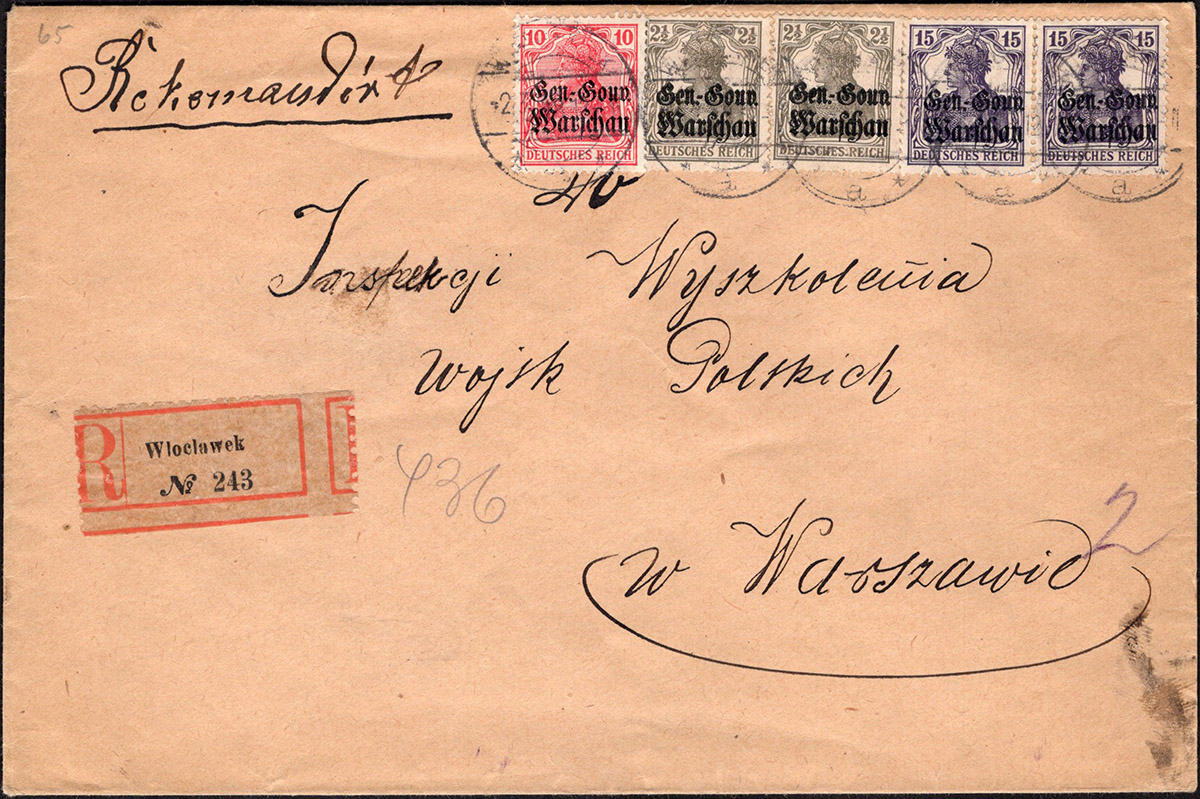 65
Rekomandirt
10 10
Gen.-Gouv.
Warschau
DEUTSCHES REICH
2½ 2½
Gen.-Gouv.
Warschau
DEUTSCHES REICH
2½ 2½
Gen.-Gouv.
Warschau
DEUTSCHES REICH
15 15
Gen.-Gouv.
Warschau
DEUTSCHES REICH
15 15
Gen.-Gouv.
Warschau
DEUTSCHES REICH
a
a
a
a
40
Inspekcji Wyszkolenia
Wojsk Polskich
w Warszawie
2
R
Wloclawek
№ 243
436